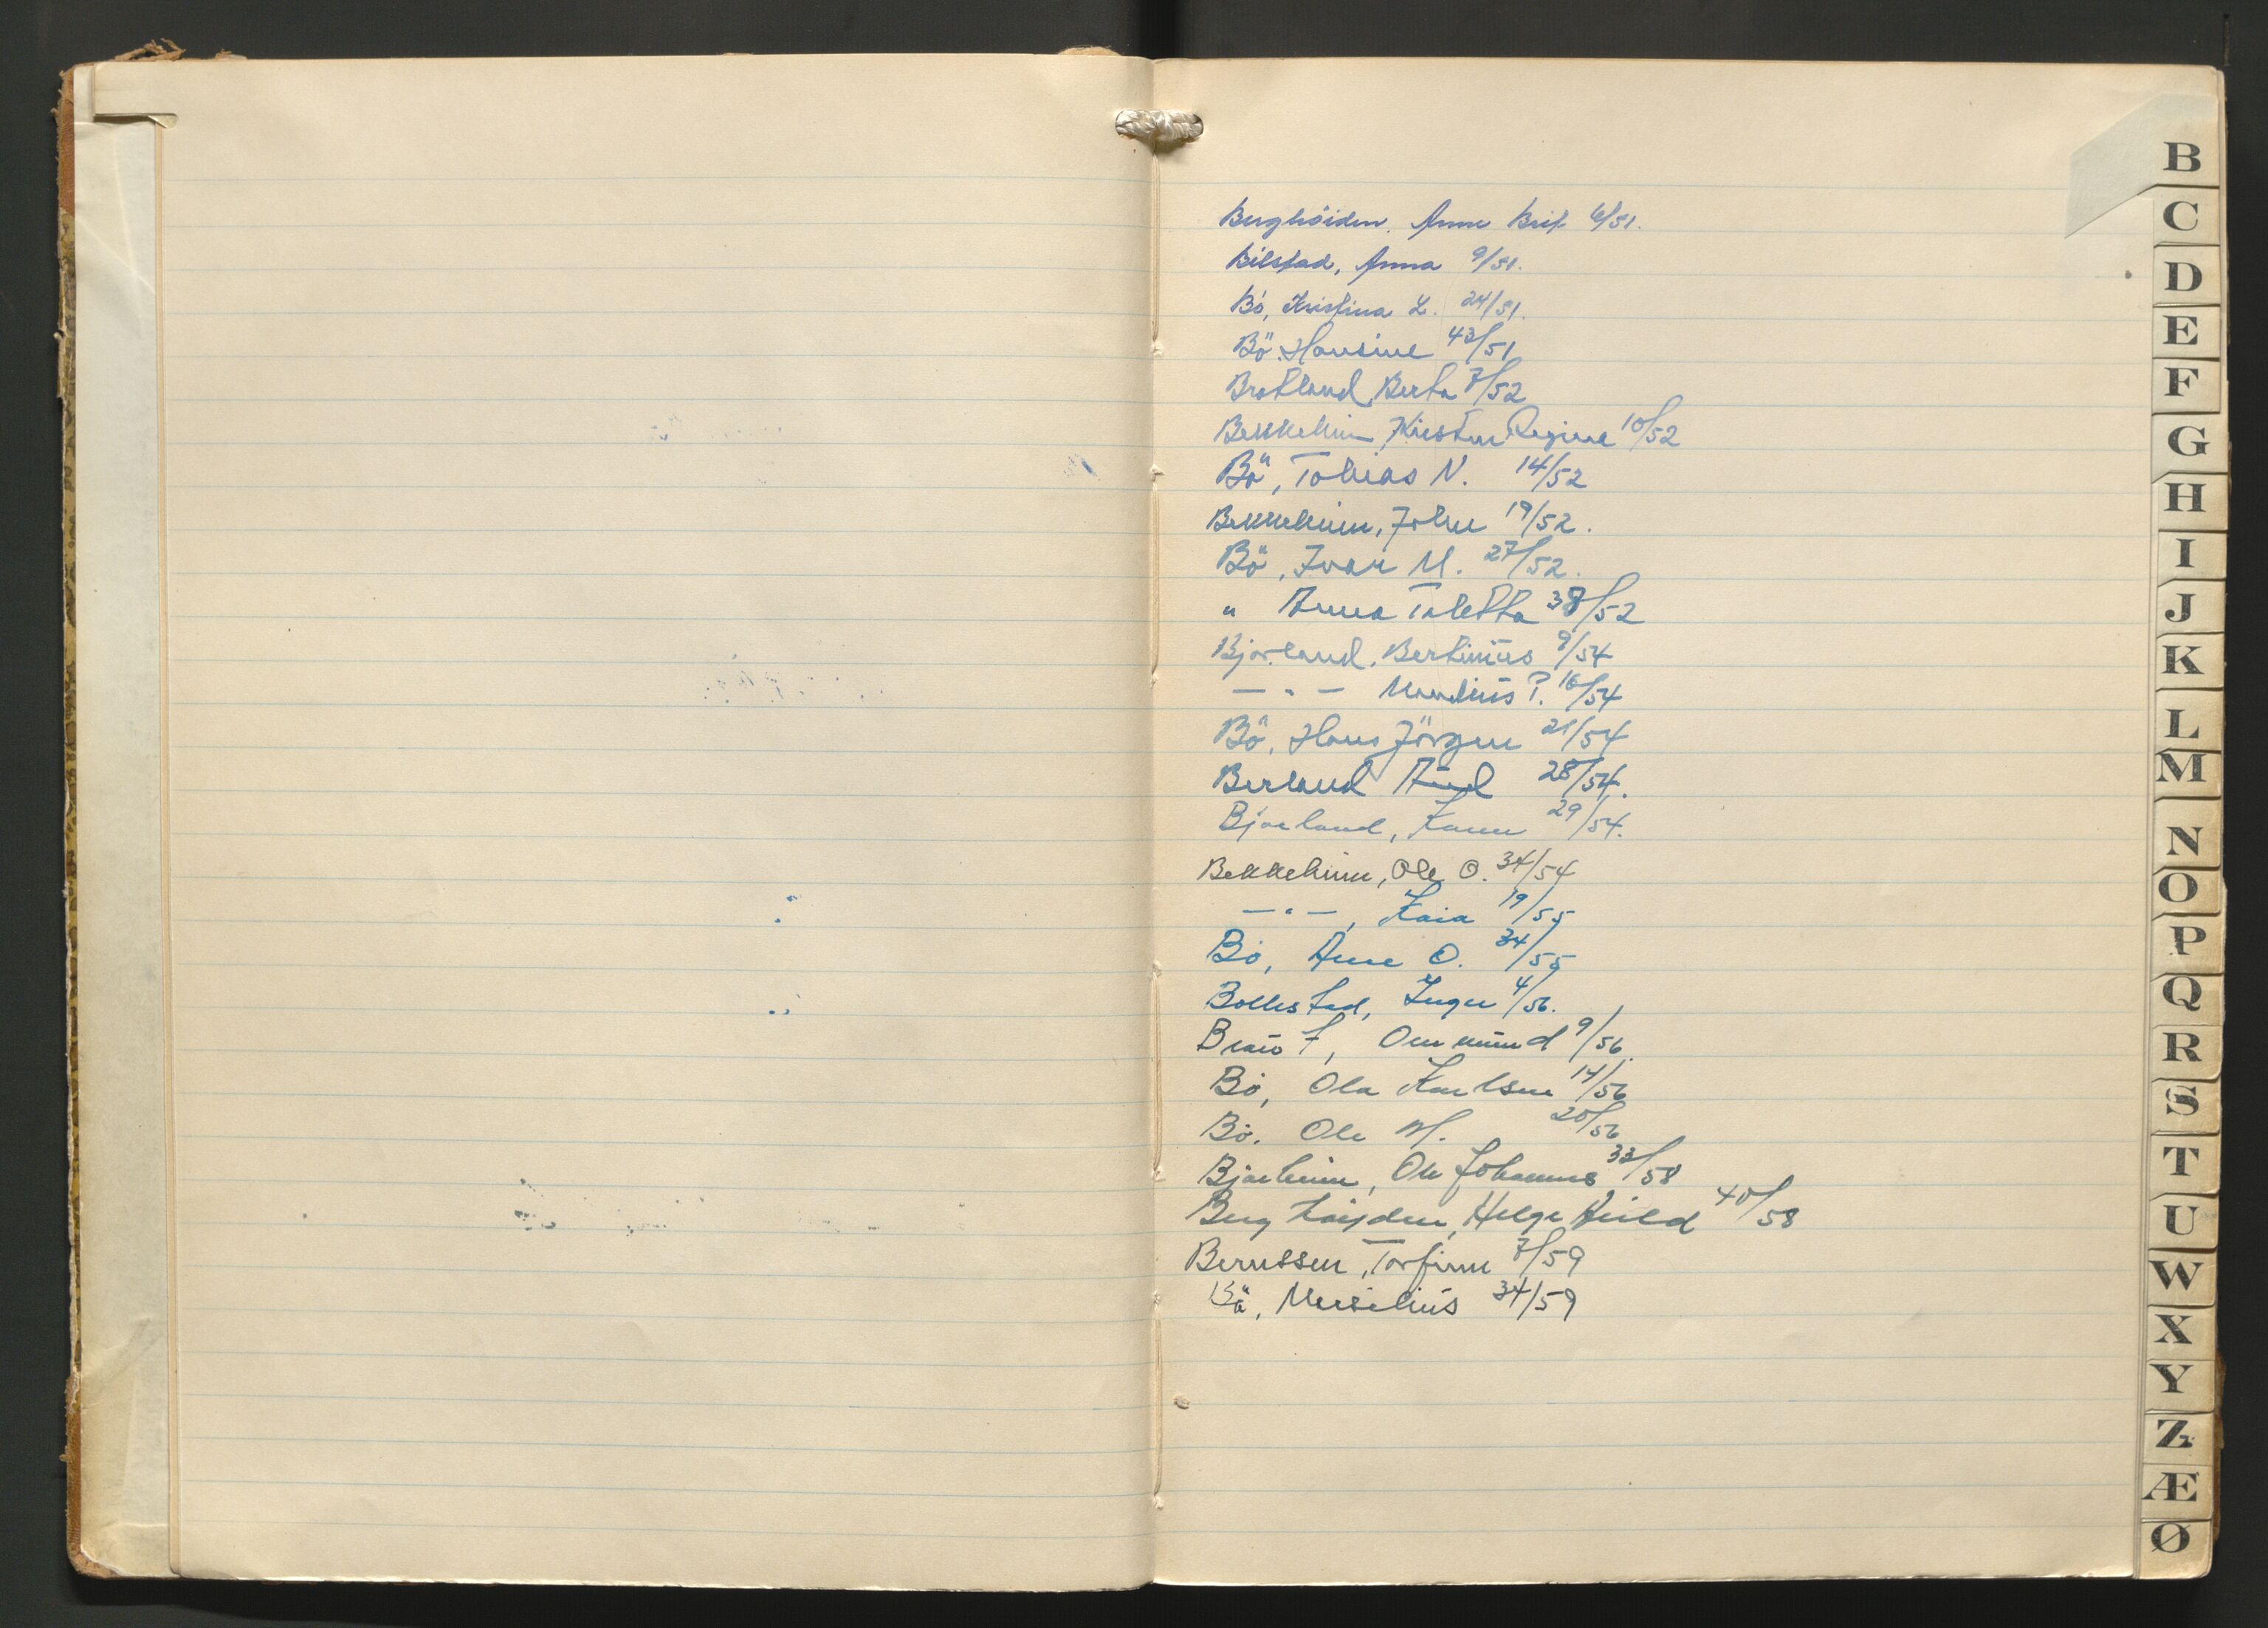 Berghöiden, Anne Brit. 6/51.
Bilstad, Anna 9/51.
Bö, Kristina L. 24/51.
Bö. Hansine 43/51
Bratland, Berta 7/52
Bekkeheim, Kirsten Regine 10/52
Bö, Tobias N. 14/52
Bekkeheim, John 19/52.
Bö, Ivar M. 27/52.
" Anna Taletta 38/52
Bjorland, Bertinius 9/54
— " — P. 16/54
Bö, Hans Jörgen 21/54
Berland 28/54.
Bjorland, Karen 29/54.
Bekkeheim, Ole O. 34/54
— " —, Kaia 19/55
Bö, Ane O. 34/55
Bollestad, Inger 4/56.
Ommund 9/56.
Bö, Ola Karlsen 14/56
Bö. Ole M. 20/56
Bjorheim, Ole Johannes 33/58
Berghöiden, Helge 40/58
Berntsen, Torfinn 7/59
Bö, 34/59
B
C
D
E
F
G
H
I
J
K
L
M
N
O
P
Q
R
S
T
U
W
X
Y
Z
Æ
Ø